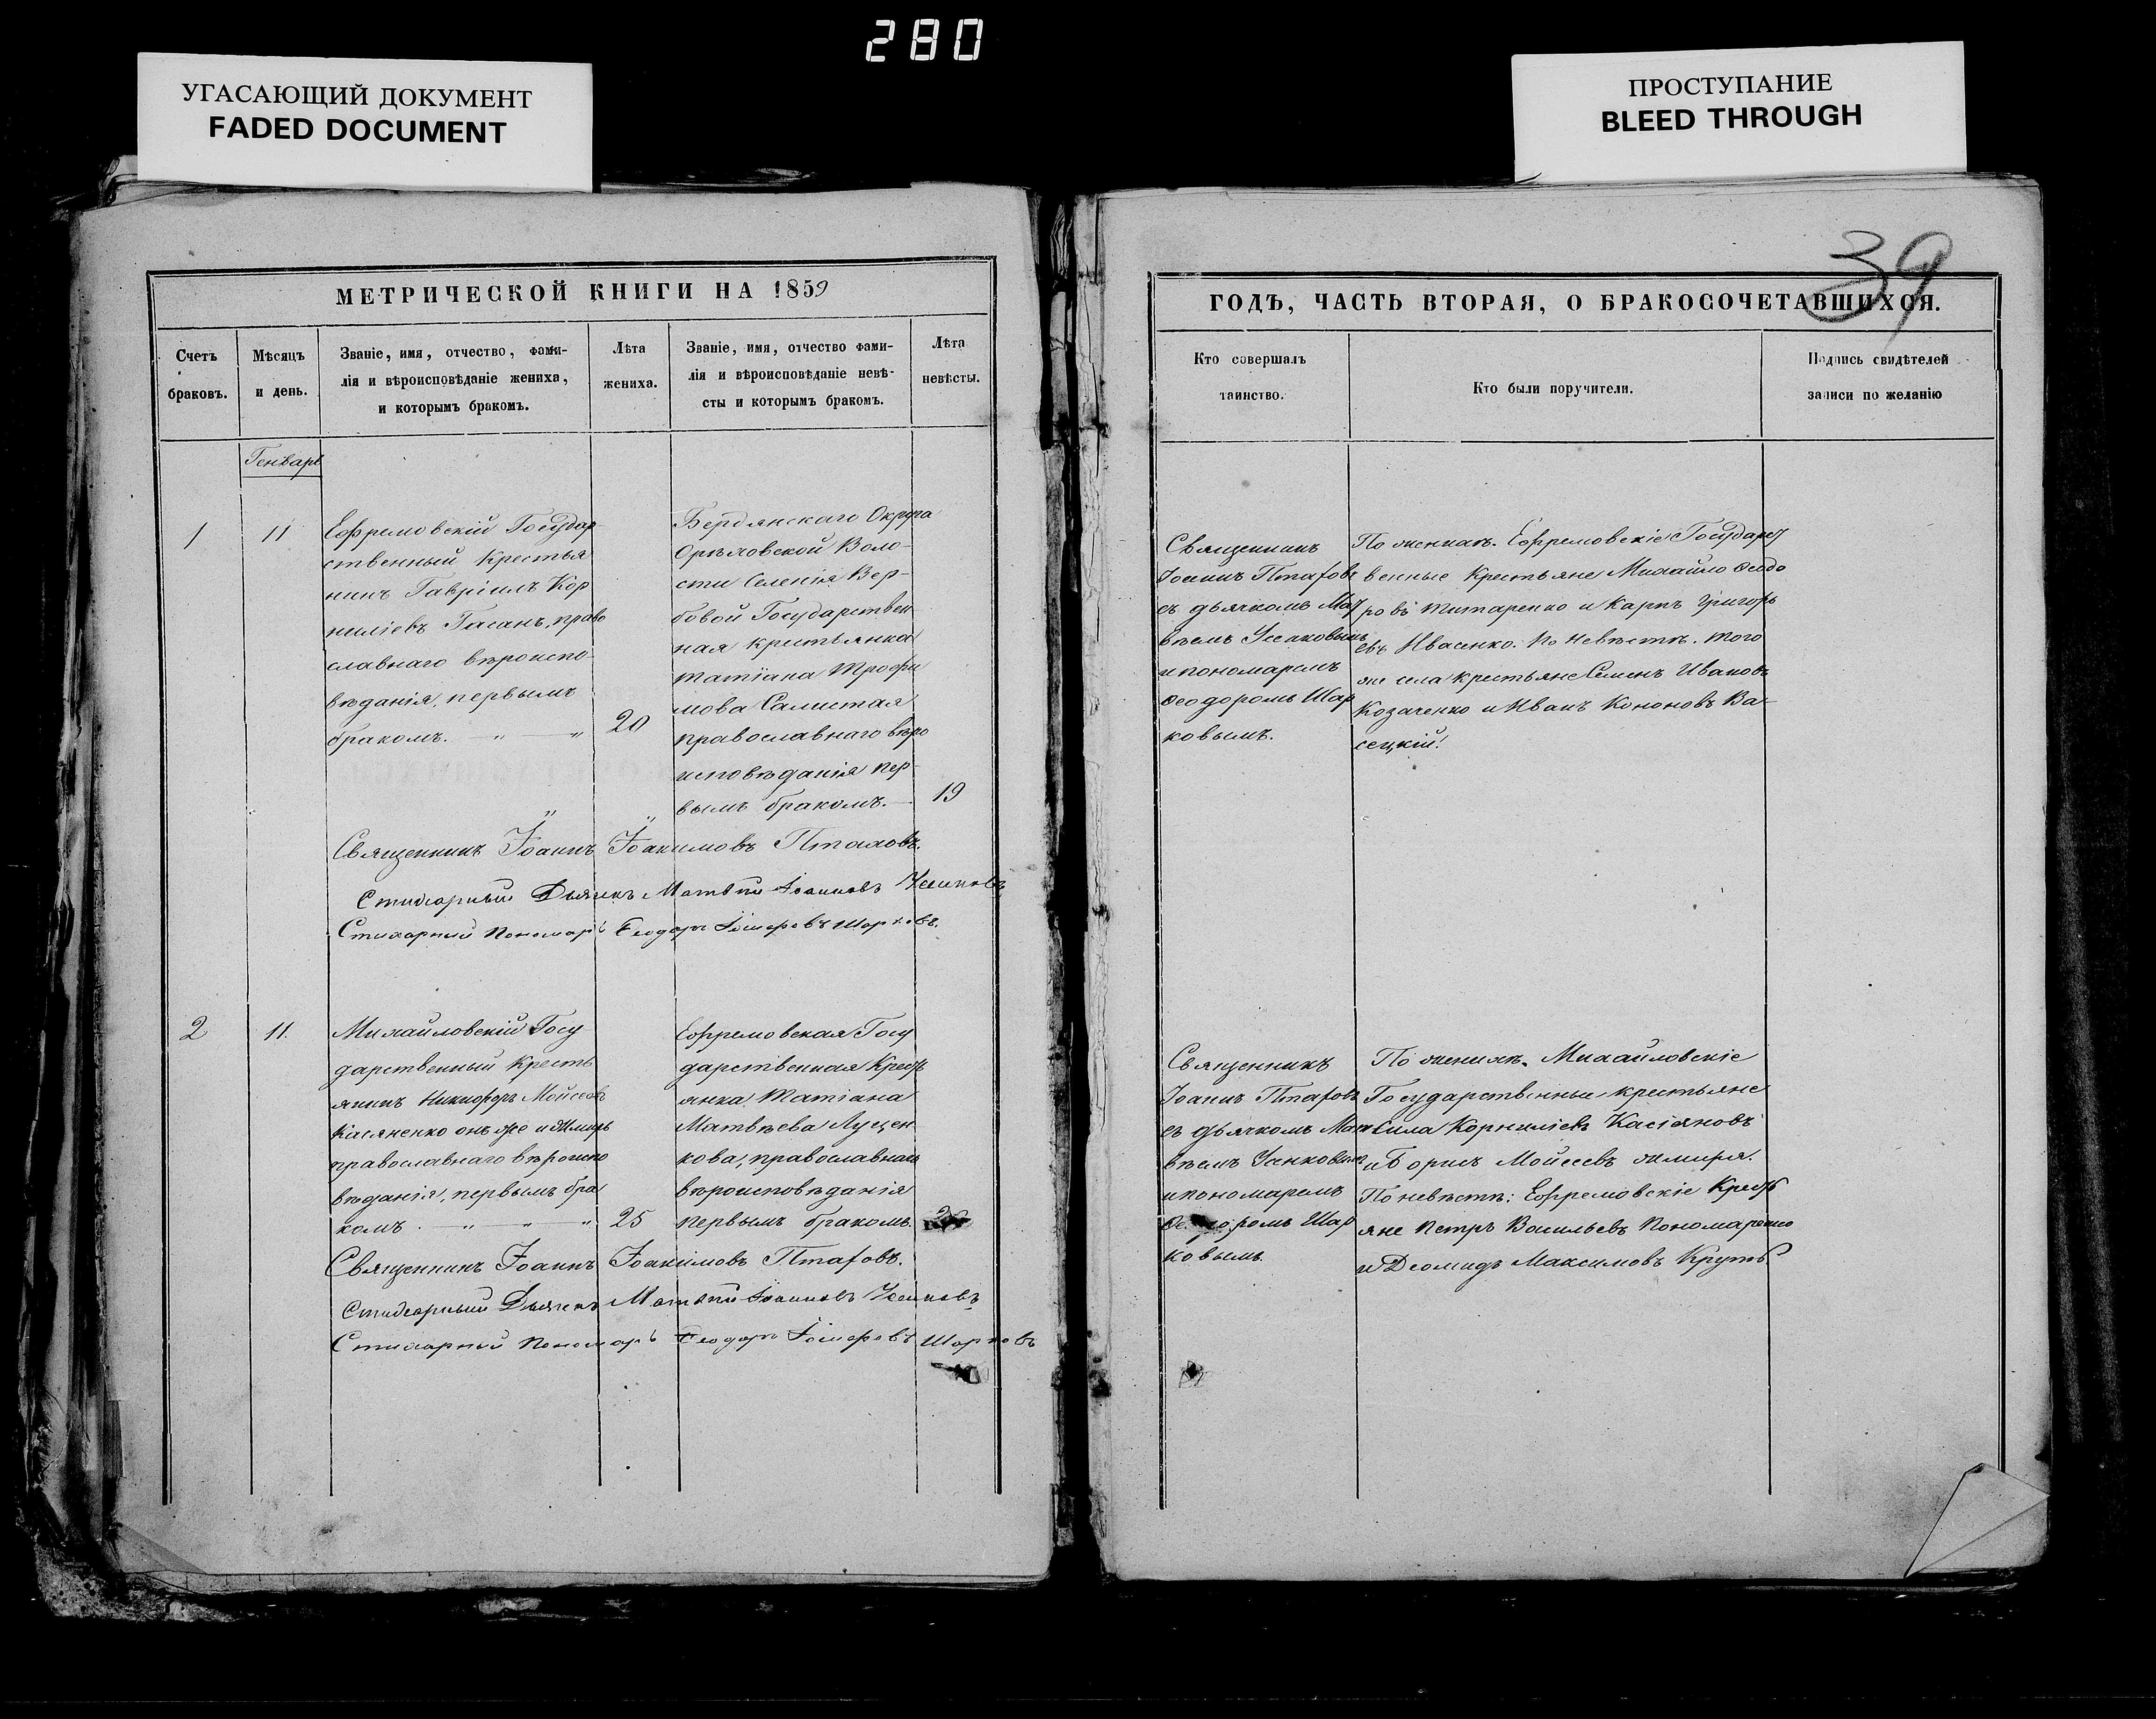 280
УГАСАЮЩИЙ ДОКУМЕНТ
FADED DOCUMENT
ПРОСТУПАНИЕ
BLEED THROUGH
39
МЕТРИЧЕСКОЙ КНИГИ НА 1859
Счетъ
браковъ.
Мѣсяцъ
и день.
Званіе, имя, отчество, фами-
лія и вѣроисповѣданіе жениха,
и которымъ бракомъ.
Лѣта
жениха.
Званіе, имя, отчество фами-
лія и вѣроисповѣданіе невѣ-
сты и которымъ бракомъ.
Лѣта
невѣсты.
Генварь
1
11
Ефремовскій Государ-
ственный крестья
нинъ Гавріилъ Кор
ниліевъ Гасанъ, право
славнаго вѣроиспо-
вѣданія, первымъ
бракомъ. — „ — „
20
Бердянскаго Округа
Орѣховской Воло-
сти Селенія Вер-
бовой Государствен
ная крестьянка
Татіана Трофи
мова Салистая
православнаго вѣро
исповѣданія пер-
вымъ бракомъ. —
19
Священникъ Іоаннъ Іоакимовъ Птаховъ.
Стихарный Дьячекъ Матвѣй Іоанновъ
Стихарный Пономарь Ѳеодоръ Шарковъ.
2
11.
Михайловскій Госу
дарственный Кресть
янинъ Никифоръ Моисеевъ
Касяненко онъ же и
православнаго вѣроиспо
вѣданія, первымъ бра
комъ. — „ — „ — „
25
Ефремовская Госу
дарственная Кресть
янка Татіана
Матвѣева Луцен
кова, православнаго
вѣроисповѣданія
первымъ бракомъ.
Священникъ Іоаннъ Іоакимовъ Птаховъ.
Стихарный Дьячекъ Матвѣй Іоанновъ
Стихарный Пономарь Ѳеодоръ Шарковъ
ГОДЪ, ЧАСТЬ ВТОРАЯ, О БРАКОСОЧЕТАВШИХСЯ.
Кто совершалъ
таинство.
Кто были поручители.
Подпись свидѣтелей
записи по желанію
Священникъ
Іоаннъ Птаховъ
съ дьячкомъ Мат
вѣемъ
и пономаремъ
Ѳеодоромъ Шар
ковымъ.
По женихѣ. Ефремовскіе Государст
венные Крестьяне Михайло Ѳеодо
ровъ Титаренко и Карпъ Григорь
евъ Ивасенко. По Невѣстѣ. того
же села крестьяне Семенъ Ивановъ
Козаченко и Иванъ Кононовъ Ва-
сецкій.
Священникъ
Іоаннъ Птаховъ
съ дьячкомъ Мат
вѣемъ
и пономаремъ
Ѳеодоромъ Шар
ковымъ.
По женихѣ. Михайловскіе
Государственные крестьяне
Сила Корниліевъ Касіяновъ
и Борисъ Мойсеевъ
По невѣстѣ: Ефремовскіе Кресть
яне Петръ Васильевъ Пономаренко
и Деомидъ Максимовъ Круть.